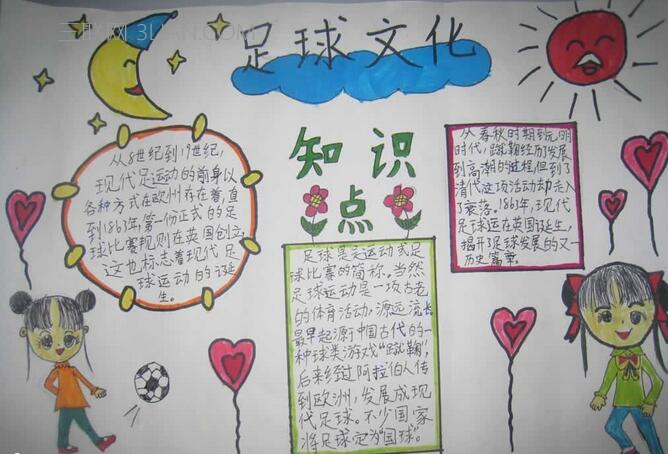 三联网 3LIAN.COM
足球文化
知识
点
从8世纪到19世纪,
现代足运动的前身以
各种方式在欧州存在着,直
到1863年,第一份正式的足
球比赛规则在英国创立,
这也标志着现代足
球运动的诞
生。
足球是足运动或足
球比赛的简称。当然
足球运动是一项古老
的体育活动,源远流长
最早起源于中国古代的一
种球类游戏"蹴鞠",
后来经过阿拉伯人传
到欧洲,发展成现
代足球。不少国家
将足球定为"国球"。
从春秋时期到元明
时代,蹴鞠经历了发展
到高潮的进程,但到了
清代这项活动却走入
了衰落。1863年,现代
足球运在英国诞生,
揭开了足球发展的又一
历史篇章。